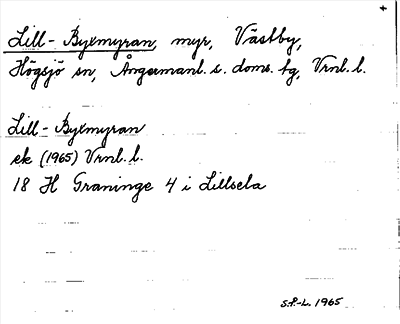 Lill-Byxmyran, myr, Västby,
Högsjö sn, Ångermanl. s. doms. tg, Vrnl. l.
Lill-Byxmyran
ek (1965) Vrnl. l.
18 H Graninge 4 i Lillsela
S.F.-L. 1965